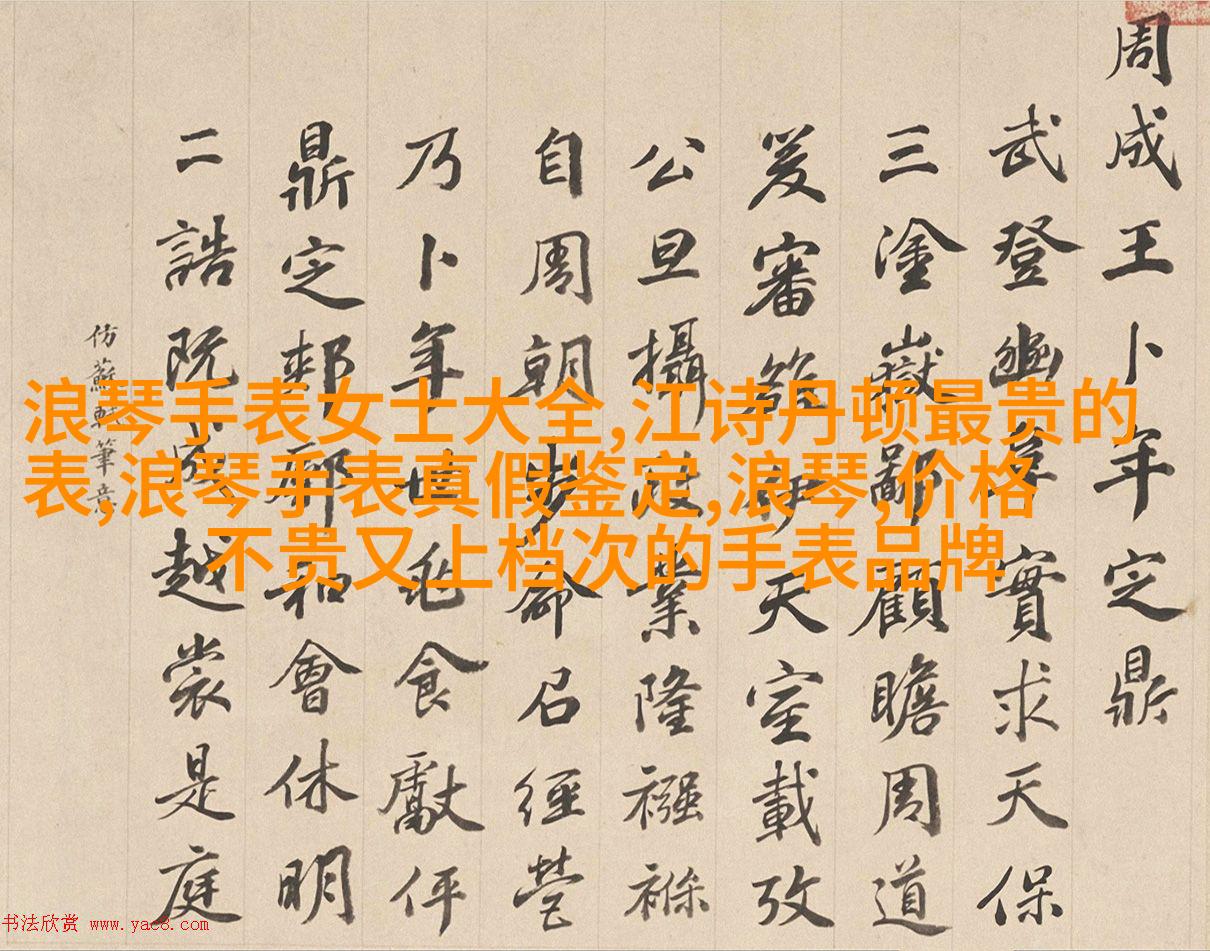 周成王卜年定鼎
武登豳阜實求天保
三塗嶽鄙顧瞻周道
爰審伊天室載攷
公旦攝政業隆襁褓
自周朝步命召經營
乃卜年世兆食獻伻
鼎定郟鄏和會休明
二誥既成越裳是庭
仿蘇軾筆意
浪琴手表女士大全,江诗丹顿最贵的
表,浪琴手表真假鉴定,浪琴,价格
不贵又上档次的手表品牌
书法欣赏 www.yac8.com